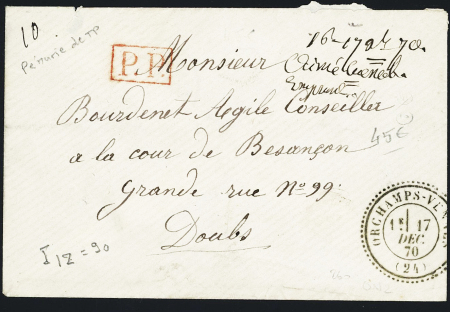 10
Pénurie de TP
16 - 17 Xbre 70.
P.P.
Monsieur
Bourdenet Agile Conseiller
a la cour de Besançon
45€
grande rue No 99.
Doubs
I 12 = 90
ORCHAMPS-VEN
1E 17
DEC
70
(24)